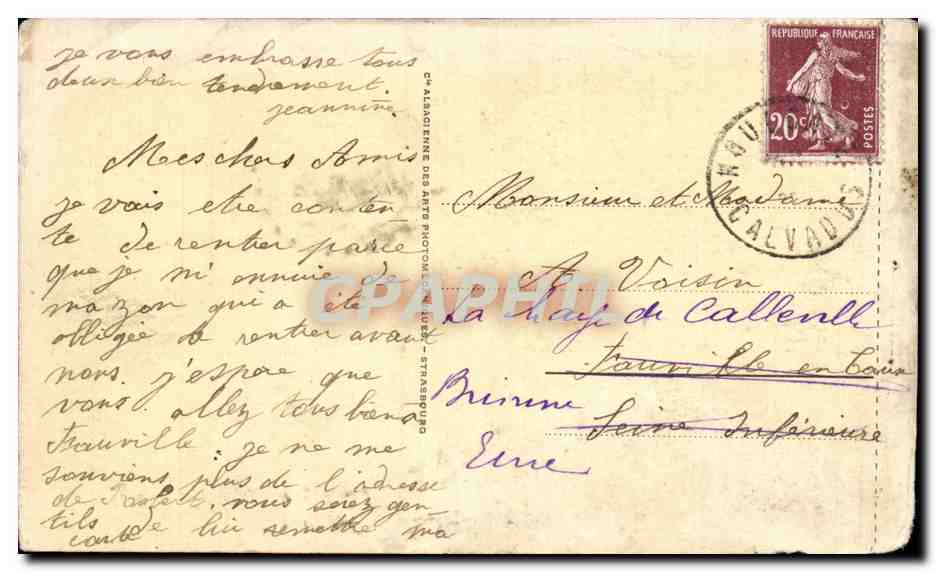 je vous embrasse tous
deux bien tendement.
jeannine
Mes chers Amis
je vais etre conten
te de rentrer parce
que je m'annuie de
mazon qui a été
obligée de rentrer avant
nous. j'espère que
vous allez tous bien à
Fauville. je ne me
souviens plus de l'adresse
de vous seriez gen
tils de lui remettre ma
carte
Cie ALSACIENNE DES ARTS PHOTOMÉCANIQUES - STRASBOURG
RÉPUBLIQUE FRANÇAISE
20c
POSTES
CALVADOS
Monsieur et Madame
A. Voisin
La Haye de Calleville
Fauville en Caux
Brionne
Seine Inférieure
Eure
CPAPHIL